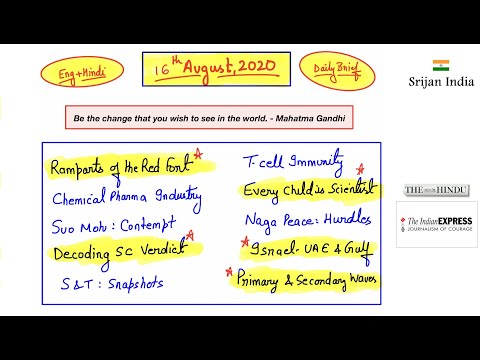 Eng+Hindi
16th August, 2020
Daily Brief
Srijan India
Be the change that you wish to see in the world. - Mahatma Gandhi
Ramparts of the Red Font
Chemical Pharma Industry
Suo Motu: Contempt
Decoding SC Verdict
S&T: Snapshots
T-cell Immunity
Every Child is Scientist
Naga Peace: Hurdles
Israel-UAE & Gulf
Primary & Secondary Waves
THE HINDU
The Indian EXPRESS
JOURNALISM OF COURAGE